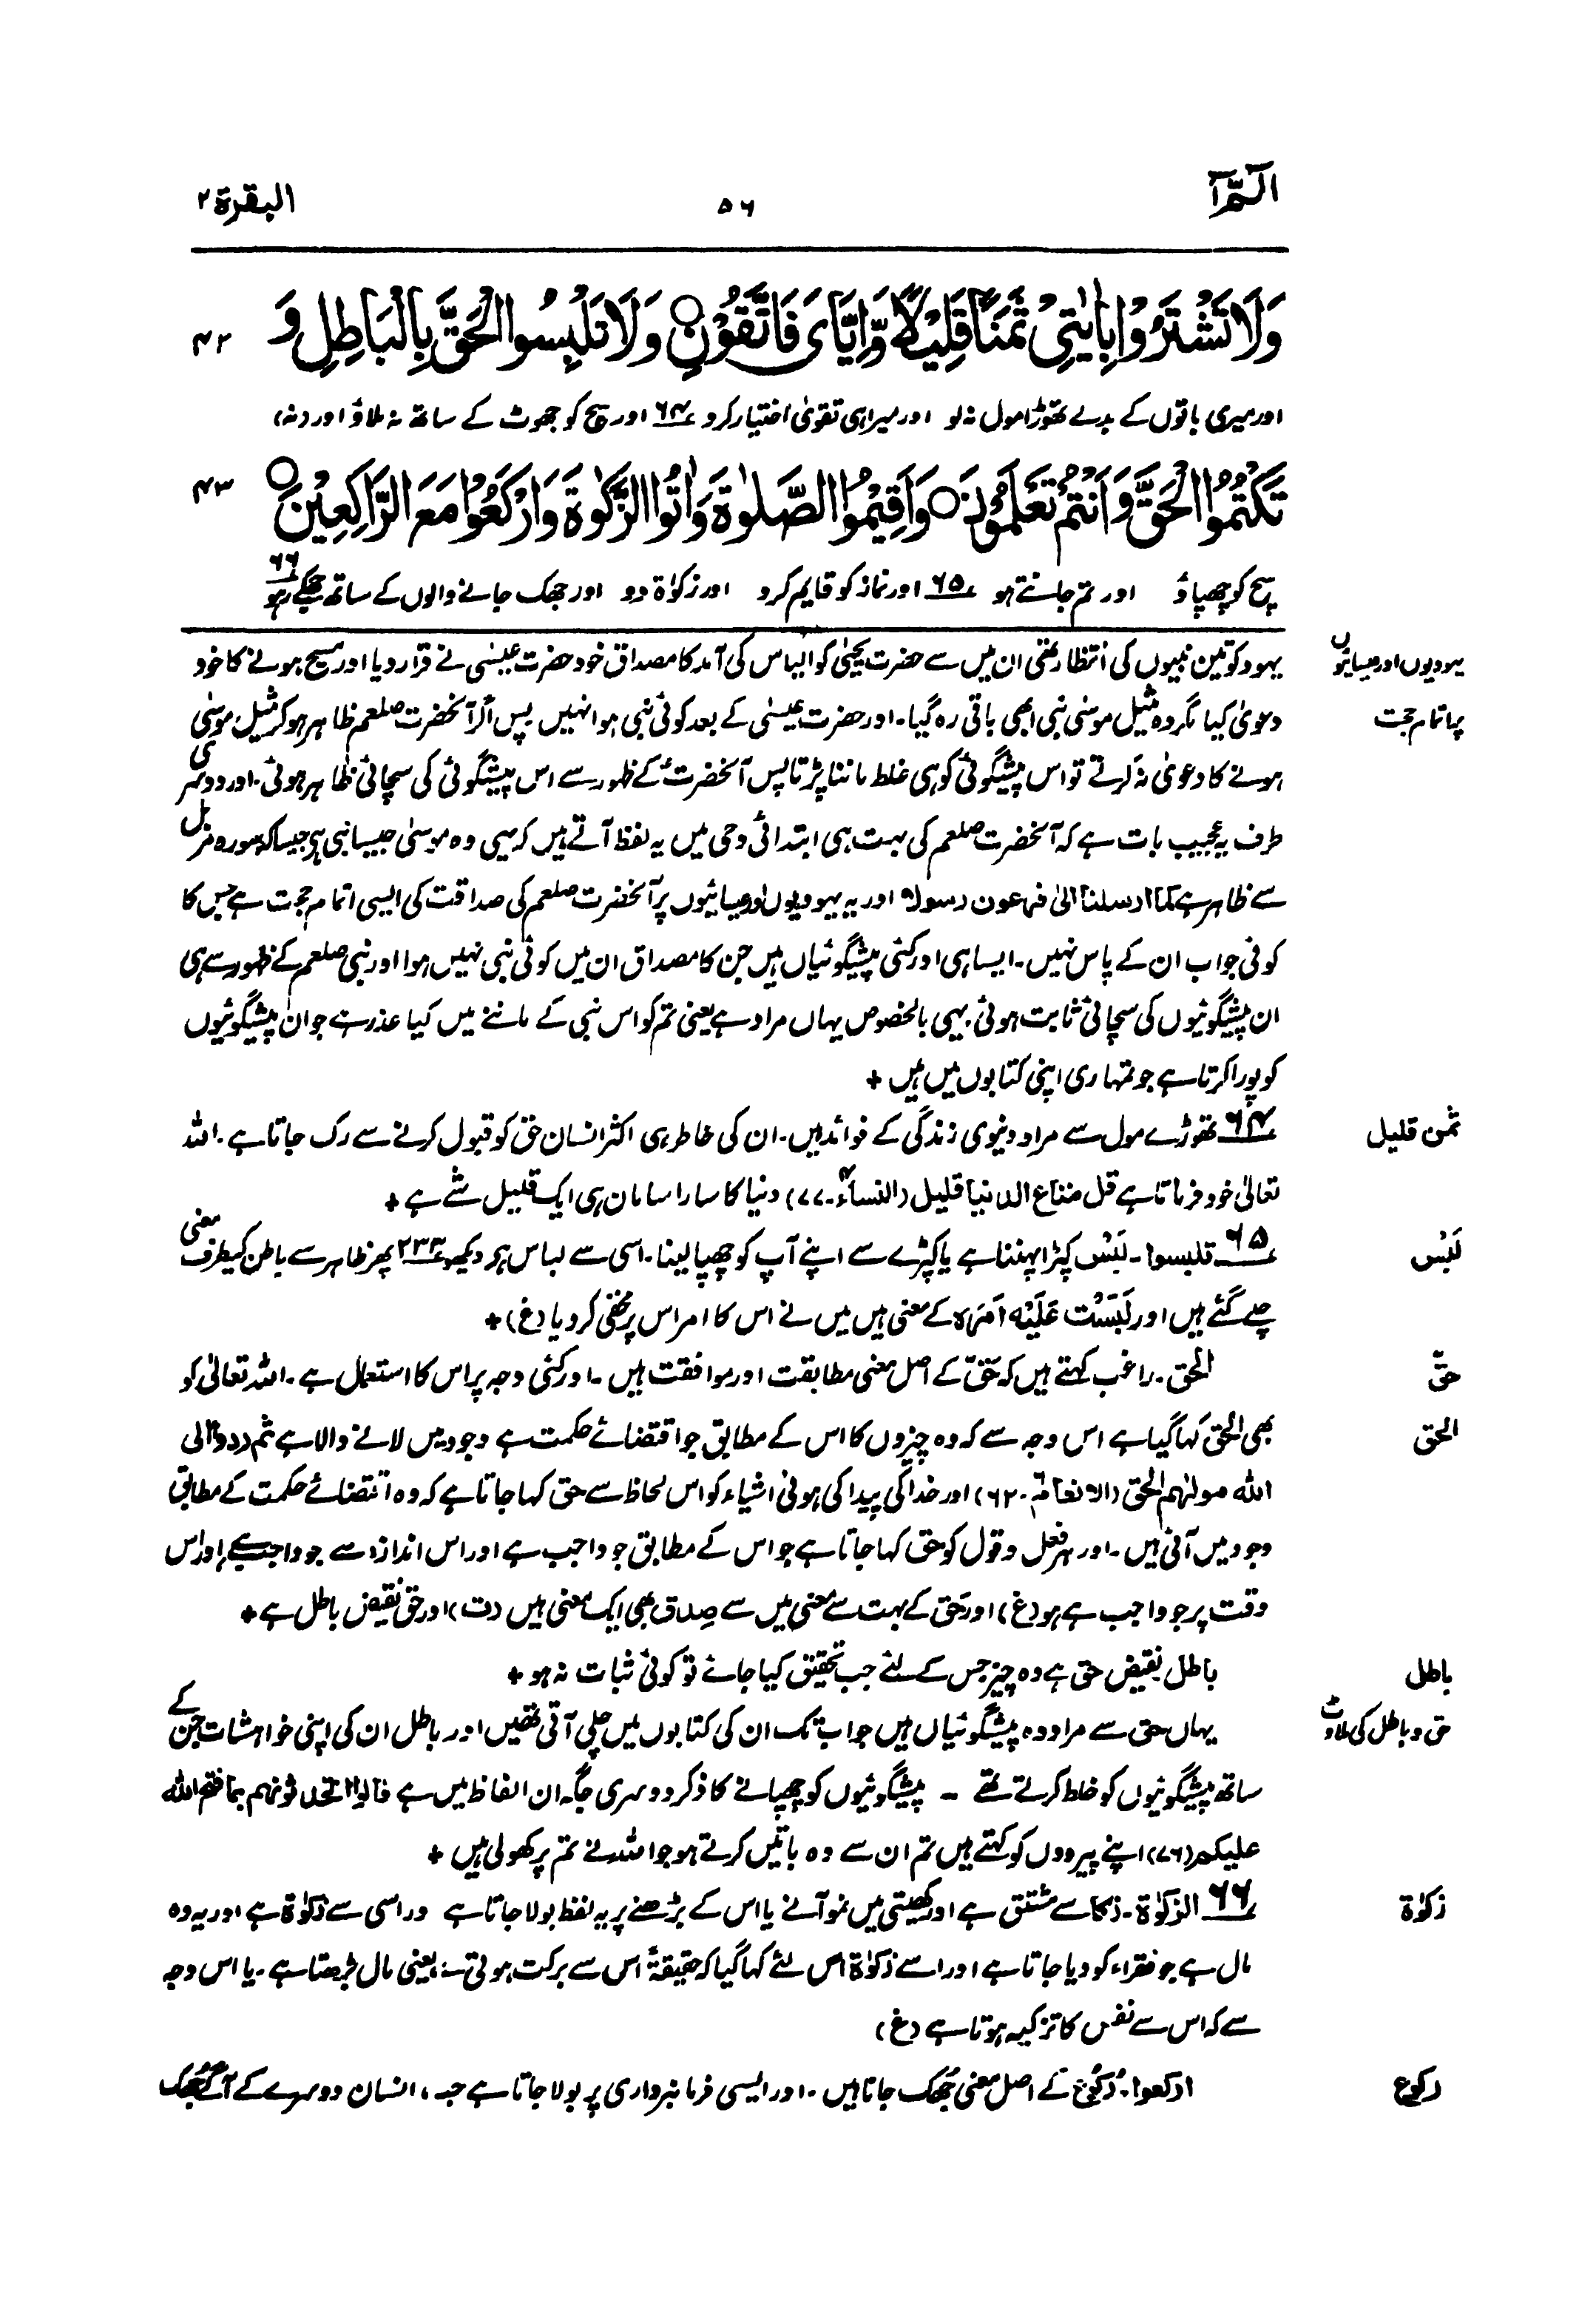 الٓمّٓ ١
٥٦
البقرة ٢
وَلَا تَشْتَرُوْا بِاٰيٰتِيْ ثَمَنًا قَلِيْلًا وَّاِيَّايَ فَاتَّقُوْنِ ○ وَلَا تَلْبِسُوا الْحَقَّ بِالْبَاطِلِ وَ
٤٢
اور میری باتوں کے بدلے تھوڑا مول نہ لو اور میرا ہی تقویٰ اختیار کرو ٦٤ اور سچ کو جھوٹ کے ساتھ نہ ملاؤ اور (نہ)
تَكْتُمُوا الْحَقَّ وَاَنْتُمْ تَعْلَمُوْنَ ○ وَاَقِيْمُوا الصَّلٰوةَ وَاٰتُوا الزَّكٰوةَ وَارْكَعُوْا مَعَ الرَّاكِعِيْنَ ○
٤٣
سچ کو چھپاؤ اور تم جانتے ہو ٦٥ اور نماز کو قایم کرو اور زکوٰۃ دو اور جھک جانے والوں کے ساتھ جھکے رہو ٦٦
یہودیوں اور عیسائیوں
یہود کو تین نبیوں کی انتظار تھی ان میں سے حضرت یحییٰ کو الیاس کی آمد کا مصداق خود حضرت عیسیٰ نے قرار دیا اور مسیح ہونے کا خود
پر اتمام حجت
دعویٰ کیا مگر وہ مثیل موسیٰ نبی ابھی باقی رہ گیا۔ اور حضرت عیسیٰ کے بعد کوئی نبی ہوا نہیں پس اگر آنحضرت صلعم ظاہر ہو کر مثیل موسیٰ
ہونے کا دعویٰ نہ کرتے تو اس پیشگوئی کو ہی غلط ماننا پڑتا پس آنحضرتؐ کے ظہور سے اس پیشگوئی کی سچائی ظاہر ہوئی۔ اور دوسری
طرف یہ عجیب بات ہے کہ آنحضرت صلعم کی بہت ہی ابتدائی وحی میں یہ لفظ آتے ہیں کہ یہی وہ موسیٰ جیسا نبی ہے جیسا کہ سورہ مزمل
سے ظاہر ہے کما ارسلنا الیٰ فرعون رسولا اور یہ یہودیوں اور عیسائیوں پر آنحضرت صلعم کی صداقت کی ایسی اتمام حجت ہے جس کا
کوئی جواب ان کے پاس نہیں۔ ایسا ہی اور کئی پیشگوئیاں ہیں جن کا مصداق ان میں کوئی نبی نہیں ہوا اور نبی صلعم کے ظہور سے ہی
ان پیشگوئیوں کی سچائی ثابت ہوئی۔ یہی بالخصوص یہاں مراد ہے یعنی تم کو اس نبی کے ماننے میں کیا عذر ہے جو ان پیشگوئیوں
کو پورا کرتا ہے جو تمہاری اپنی کتابوں میں ہیں +
ثمن قلیل
٦٤ تھوڑے مول سے مراد دنیوی زندگی کے فوائد ہیں۔ ان کی خاطر ہی اکثر انسان حق کو قبول کرنے سے رک جاتا ہے۔ اللہ
تعالیٰ خود فرماتا ہے قل متاع الدنیا قلیل (النساء ٤۔٧٧) دنیا کا سارا سامان ہی ایک قلیل شے ہے +
لَبْس
٦٥ تلبسوا۔ لَبْس کپڑا پہننا ہے یا کپڑے سے اپنے آپ کو چھپا لینا۔ اسی سے لباس ہے دیکھو ٢٣٣ پھر ظاہر سے باطن کیطرف معنی
چلے گئے ہیں اور لَبَسْت عَلَيْه اَمْرَه کے معنی ہیں میں نے اس کا امر اس پر مخفی کر دیا (غ) +
حقّ
الحق۔ راغب کہتے ہیں کہ حَقّ کے اصل معنی مطابقت اور موافقت ہیں۔ اور کئی وجہ پر اس کا استعمال ہے۔ اللہ تعالیٰ کو
الحق
بھی الحق کہا گیا ہے اس وجہ سے کہ وہ چیزوں کا اس کے مطابق جو اقتضائے حکمت ہے وجود میں لانے والا ہے ثم ردوا الی
اللہ مولٰہم الحق (الانعام ٦۔٦٢) اور خدا کی پیدا کی ہوئی اشیاء کو اس لحاظ سے حق کہا جاتا ہے کہ وہ اقتضائے حکمت کے مطابق
وجود میں آئی ہیں۔ اور ہر فعل و قول کو حق کہا جاتا ہے جو اس کے مطابق جو واجب ہے اور اس اندازہ سے جو واجب ہے اور اس
وقت پر جو واجب ہے ہو (غ) اور حق کے بہت سے معنی میں سے صدق بھی ایک معنی ہیں (ت) اور حق نقیض باطل ہے +
باطل
باطل نقیض حق ہے وہ چیز جس کے لئے جب تحقیق کیا جائے تو کوئی ثبات نہ ہو +
حق و باطل کی ملاوٹ
یہاں حق سے مراد وہ پیشگوئیاں ہیں جو اب تک ان کی کتابوں میں چلی آتی تھیں اور باطل ان کی اپنی خواہشات جن کے
ساتھ پیشگوئیوں کو خلط کرتے تھے ۔ پیشگوئیوں کو چھپانے کا ذکر دوسری جگہ ان الفاظ میں ہے قالوا اتحدثونہم بما فتح اللہ
علیکم (٧٦) اپنے پیرووں کو کہتے ہیں تم ان سے وہ باتیں کرتے ہو جو اللہ نے تم پر کھولی ہیں +
زکوٰۃ
٦٦ الزکوٰۃ۔ زکا سے مشتق ہے اور کھیتی میں نمو آنے یا اس کے بڑھنے پر یہ لفظ بولا جاتا ہے وراسی سے زکوٰۃ ہے اور یہ وہ
مال ہے جو فقراء کو دیا جاتا ہے اور اسے زکوٰۃ اس لئے کہا گیا کہ حقیقۃً اس سے برکت ہوتی ہے یعنی مال بڑھتا ہے۔ یا اس وجہ
سے کہ اس سے نفس کا تزکیہ ہوتا ہے (غ)
رکوع
ارکعوا۔ رُکُوْع کے اصل معنی جُھک جانا ہیں۔ اور ایسی فرمانبرداری پر بولا جاتا ہے جب انسان دوسرے کے آگے جھک